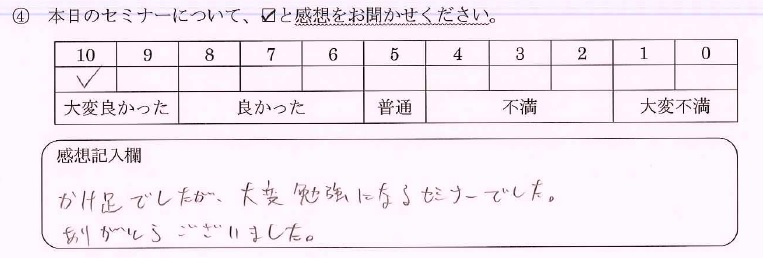 ④ 本日のセミナーについて、☑と感想をお聞かせください。
10 9 8 7 6 5 4 3 2 1 0
✓
大変良かった 良かった 普通 不満 大変不満
感想記入欄
かけ足でしたが、大変勉強になるセミナーでした。
ありがとうございました。